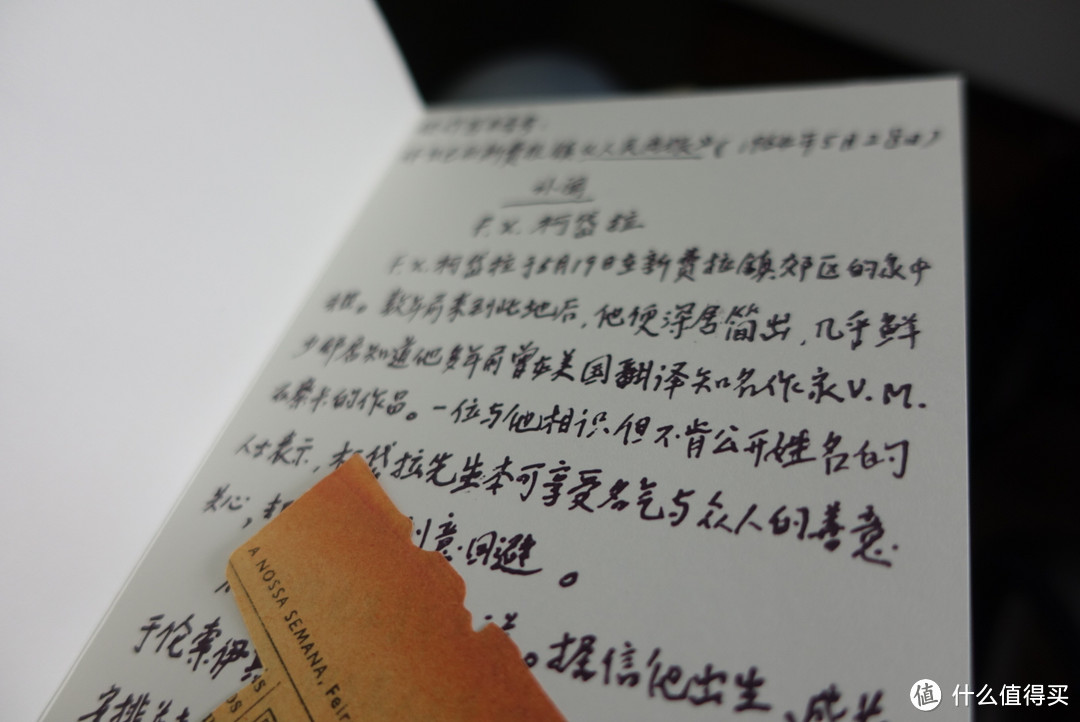 新费拉镇 人民先驱户（1964年5月28日）
讣闻
F.X.柯岱拉
F.X.柯岱拉于5月19日在新费拉镇郊区的家中
。数年前来到此地后，他便深居简出，几乎鲜
少邻居知道他多年前曾在美国翻译知名作家V.M.
石察卡的作品。一位与他相识但不肯公开姓名的
人士表示，柯岱拉先生本可享受名气与众人的善意
关心，却 刻意回避。
于伦索伊 。据信他出生、成长
安排
A NOSSA SEMANA, Feir
值 什么值得买